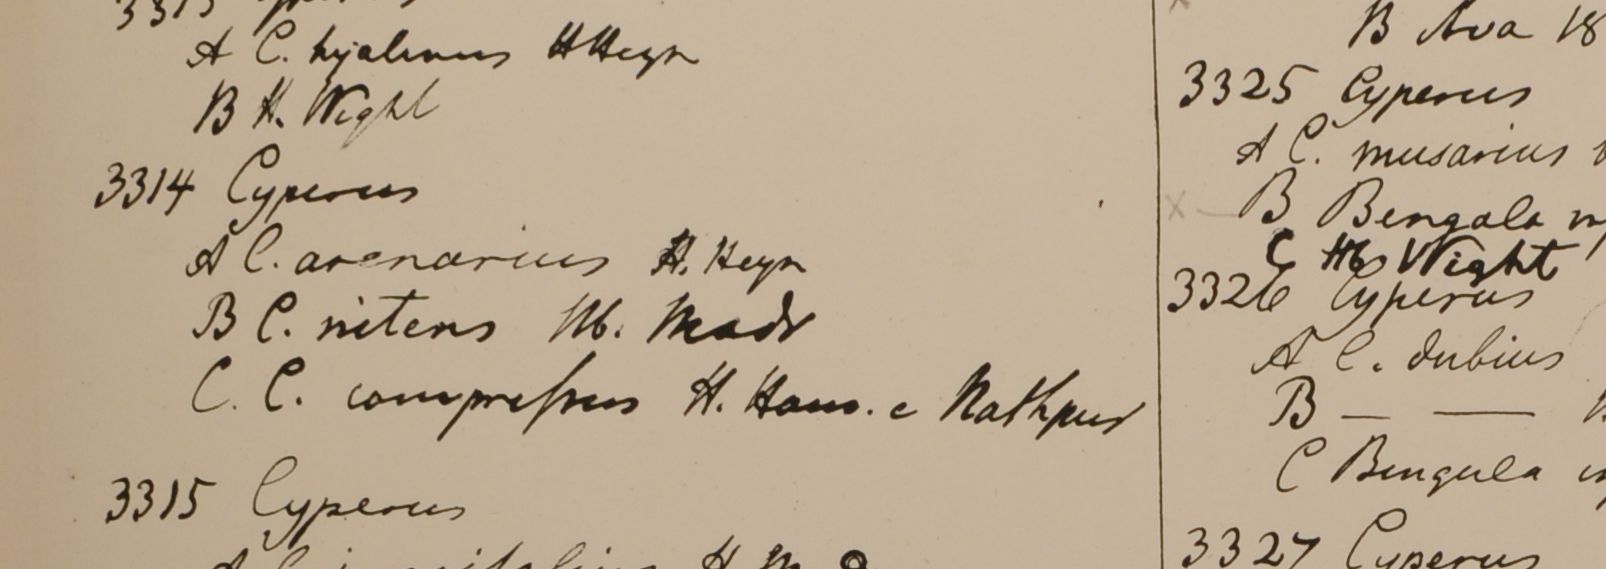 3313 Cyperus
A C. hyalinus H Heyn
B H. Wight
3314 Cyperus
A C. arenarius H. Heyn
B C. nitens Hb. Madr
C. C. compreſsus H. Ham. e Nathpur
3315 Cyperus
B Ava 18
3325 Cyperus
A C. musarius
B Bengala
C Hb Wight
3326 Cyperus
A C. dubius
B — —
C Bengala
3327 Cyperus